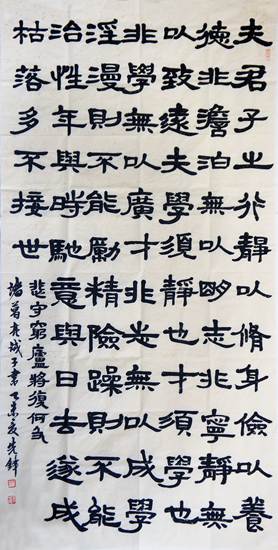 夫君子之行靜以脩身儉以養
德非澹泊無以明志非寧靜無
以致遠夫學須靜也才須學也
非學無以廣才非志無以成學
淫漫則不能勵精險躁則不能
治性年與時馳意與日去遂成
枯落多不接世
悲守窮廬將復何及
諸葛亮誡子書 乙未夏 先鋒